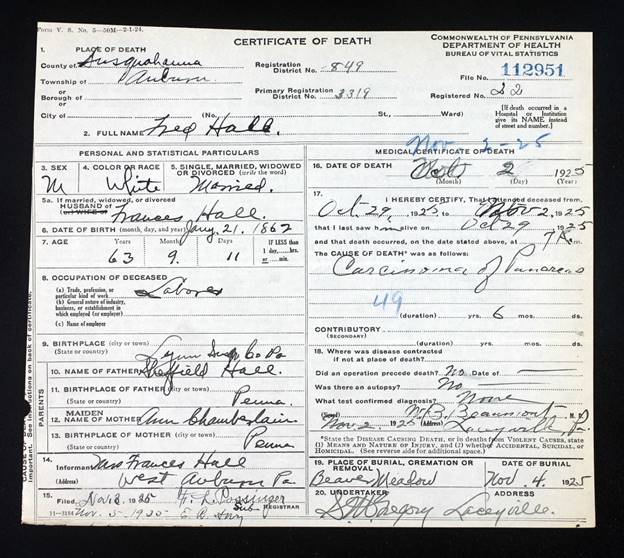 Form V. S. No. 5—50M—2-1-24.
CERTIFICATE OF DEATH
COMMONWEALTH OF PENNSYLVANIA
DEPARTMENT OF HEALTH
BUREAU OF VITAL STATISTICS
1. PLACE OF DEATH
County of Susquehanna
Township of Auburn
or
Borough of
or
City of
Registration District No. 849
Primary Registration District No. 3319
File No. 112951
Registered No. 22
(No. St., Ward)
[If death occurred in a Hospital or Institution give its NAME instead of street and number.]
2. FULL NAME Fred Hall.
PERSONAL AND STATISTICAL PARTICULARS
3. SEX M
4. COLOR OR RACE White
5. SINGLE, MARRIED, WIDOWED OR DIVORCED (write the word) Married.
5a. If married, widowed, or divorced
HUSBAND of
(or) WIFE of Frances Hall.
6. DATE OF BIRTH (month, day, and year) Jany. 21. 1862
7. AGE Years Months Days IF LESS than 1 day, hrs. or min.
63 9. 11
8. OCCUPATION OF DECEASED
(a) Trade, profession, or particular kind of work Laborer
(b) General nature of industry, business, or establishment in which employed (or employer)
(c) Name of employer
9. BIRTHPLACE (city or town) Lynn Susq Co Pa
(State or country)
10. NAME OF FATHER Sheffield Hall.
11. BIRTHPLACE OF FATHER (city or town)
(State or country) Penna.
PARENTS
12. MAIDEN NAME OF MOTHER Ann Chamberlain
13. BIRTHPLACE OF MOTHER (city or town)
(State or country) Penna
14. Informant Mrs Frances Hall
(Address) West Auburn Pa
15. Filed Nov 3. 1925 Sub REGISTRAR
Nov. 5-1925
MEDICAL CERTIFICATE OF DEATH
Nov 2-25
16. DATE OF DEATH 2 1925
(Month) (Day) (Year)
17. I HEREBY CERTIFY, That I attended deceased from
Oct. 29, 1925 to Nov 2, 1925
that I last saw him alive on Oct 29 1925
and that death occurred, on the date stated above, at 7 A m.
The CAUSE OF DEATH* was as follows:
Carcinoma of Pancreas
49
(duration) yrs. 6 mos. ds.
CONTRIBUTORY
(SECONDARY)
(duration) yrs. mos. ds.
18. Where was disease contracted
if not at place of death?
Did an operation precede death? No. Date of —
Was there an autopsy? No —
What test confirmed diagnosis? None
(Signed) W. B. Beaumont M. D.
Nov 2, 1925 (Address) Laceyville, Pa.
*State the DISEASE CAUSING DEATH, or in deaths from VIOLENT CAUSES, state (1) MEANS AND NATURE OF INJURY, and (2) whether ACCIDENTAL, SUICIDAL, or HOMICIDAL. (See reverse side for additional space.)
19. PLACE OF BURIAL, CREMATION OR REMOVAL DATE OF BURIAL
Beaver Meadow Nov. 4, 1925
20. UNDERTAKER ADDRESS
Gregory Laceyville.